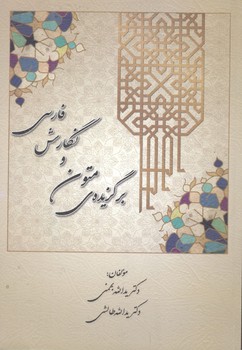 برگزیده‌ی متون و نگارش فارسی
مؤلفان:
دکتر یدالله بهمنی
دکتر یدالله طالشی